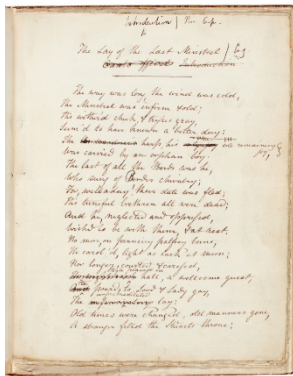 Introduction
The Lay of the Last Minstrel
Introduction
The way was long, the wind was cold,
The Minstrel was infirm & old;
His withered cheek, & tresses gray,
Seem'd to have known a better day;
The harp, his sole remaining joy,
Was carried by an orphan boy:
The last of all the Bards was he,
Who sung of Border chivalry;
For, welladay! their date was fled,
His tuneful brethren all were dead;
And he, neglected and oppressed,
Wished to be with them, & at rest.
No more, on prancing palfrey borne,
He caroll'd, light as lark at morn;
No longer, courted & caressed,
High placed in hall, a welcome guest,
He poured, to Lord & Lady gay,
The unpremeditated lay:
Old times were changed, old manners gone,
A stranger filled the Stuarts throne;